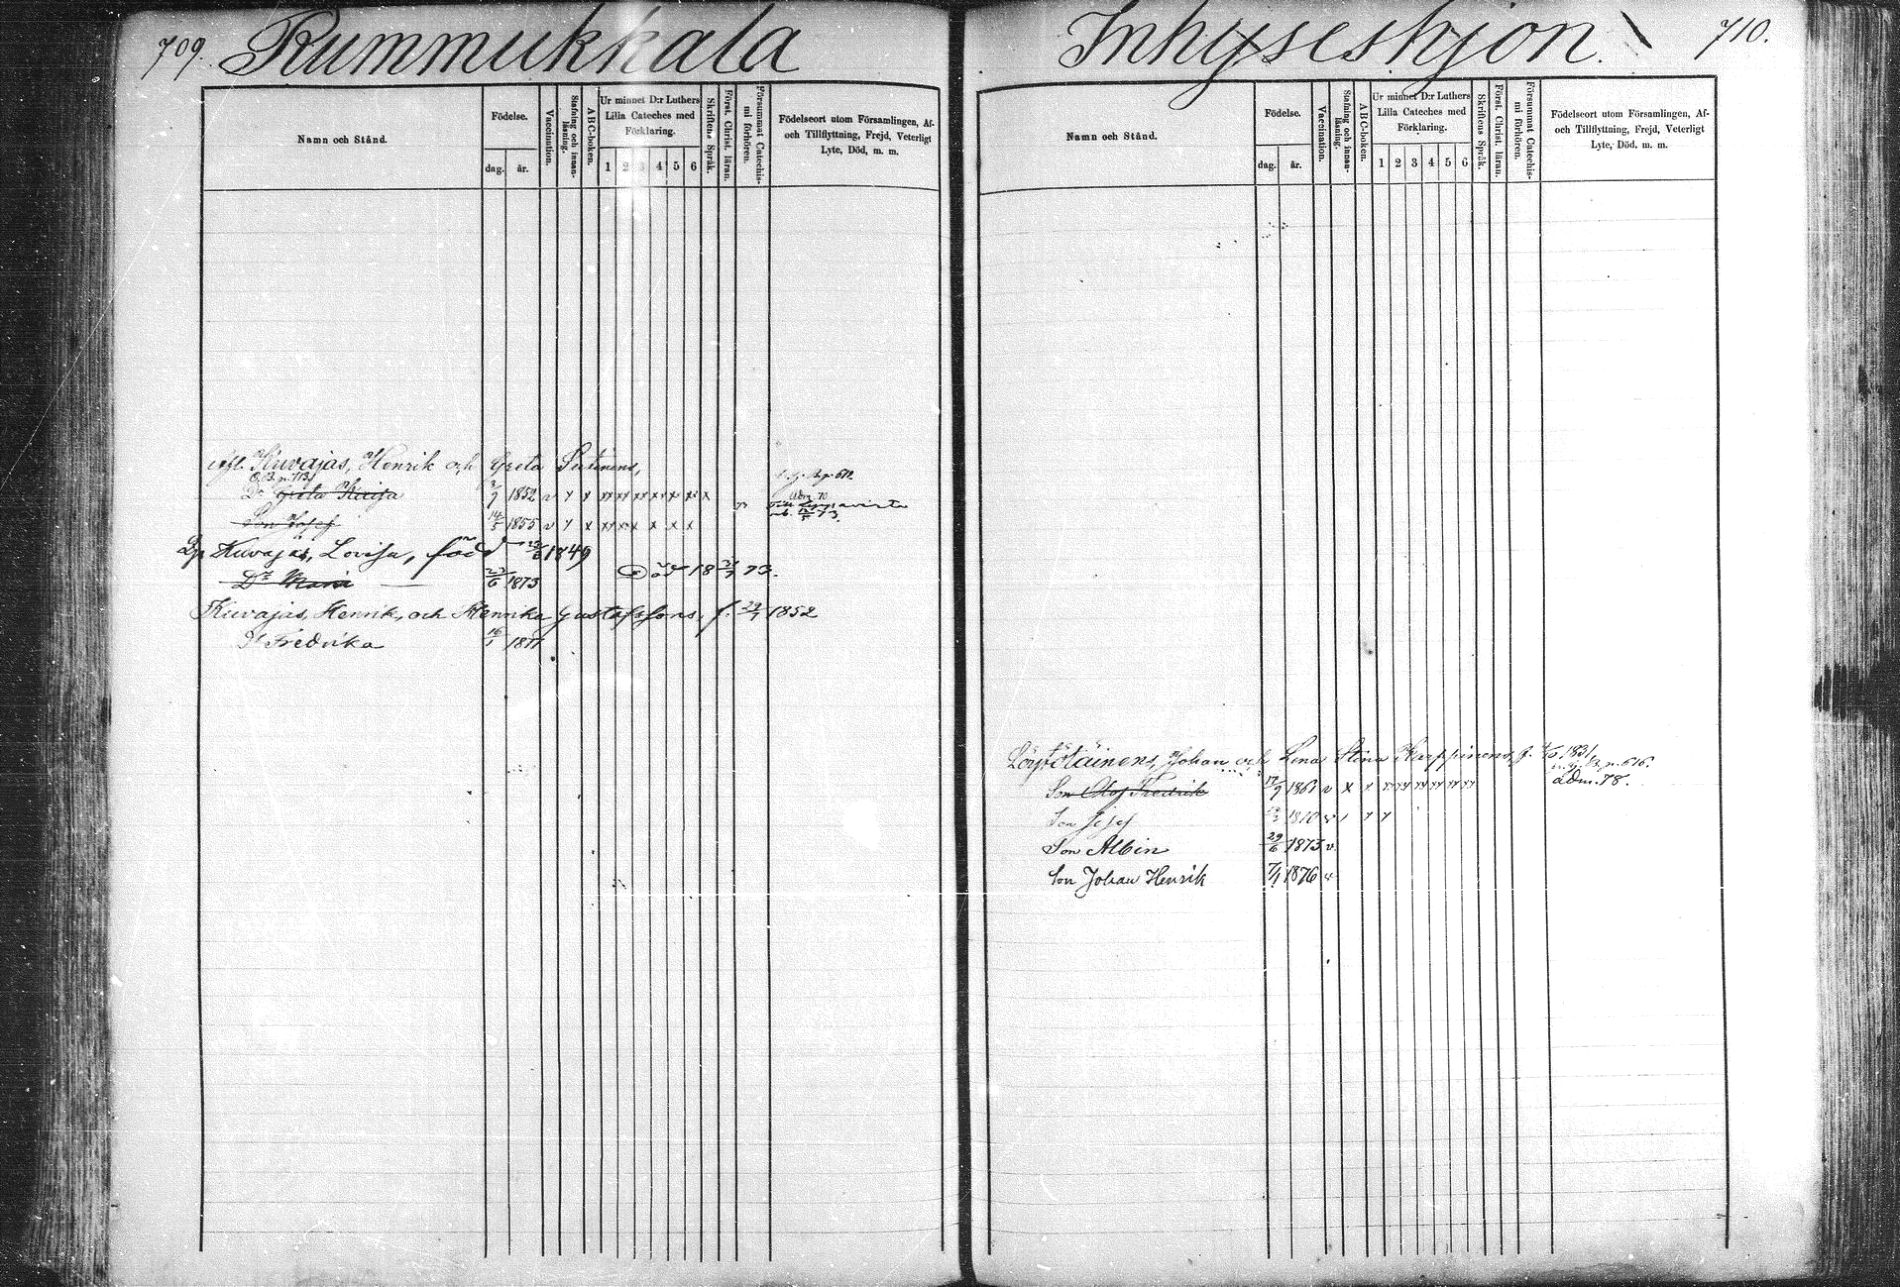 709. Rummukkala
Namn och Stånd.
Födelse.
dag. år.
Vaccination.
Stafning och innanläsning.
A B C-boken.
Ur minnet D:r Luthers Lilla Cateches med Förklaring.
1 2 3 4 5 6
Skriftens Språk.
Först. Christ. läran.
Försummat Catechismi förhören.
Födelseort utom Församlingen, Af- och Tillflyttning, Frejd, Veterligt Lyte, Död, m. m.
Kuvajas, Henrik och Greta
Dr Greta Kaisa 3/7 1852 v
Adm. 70
Son Josef 14/5 1855 v
Kuvajas, Lovisa, född 1849
Dr Maria 23/6 1873
Kuvajas, Henrik, och Henrika Gustafssons, f. 1852
Dr Fredrika 16/1
Inhyseshjon. 710.
Namn och Stånd.
Födelse.
dag. år.
Vaccination.
Stafning och innanläsning.
A B C-boken.
Ur minnet D:r Luthers Lilla Cateches med Förklaring.
1 2 3 4 5 6
Skriftens Språk.
Först. Christ. läran.
Försummat Catechismi förhören.
Födelseort utom Församlingen, Af- och Tillflyttning, Frejd, Veterligt Lyte, Död, m. m.
Johan och Lena Stina Karppinens, 1831,
Son Olof Fredrik 1861 v
adm. 78.
Son Josef
Son Albin 29/6 1873 v.
Son Johan Henrik 7/1 1876 v